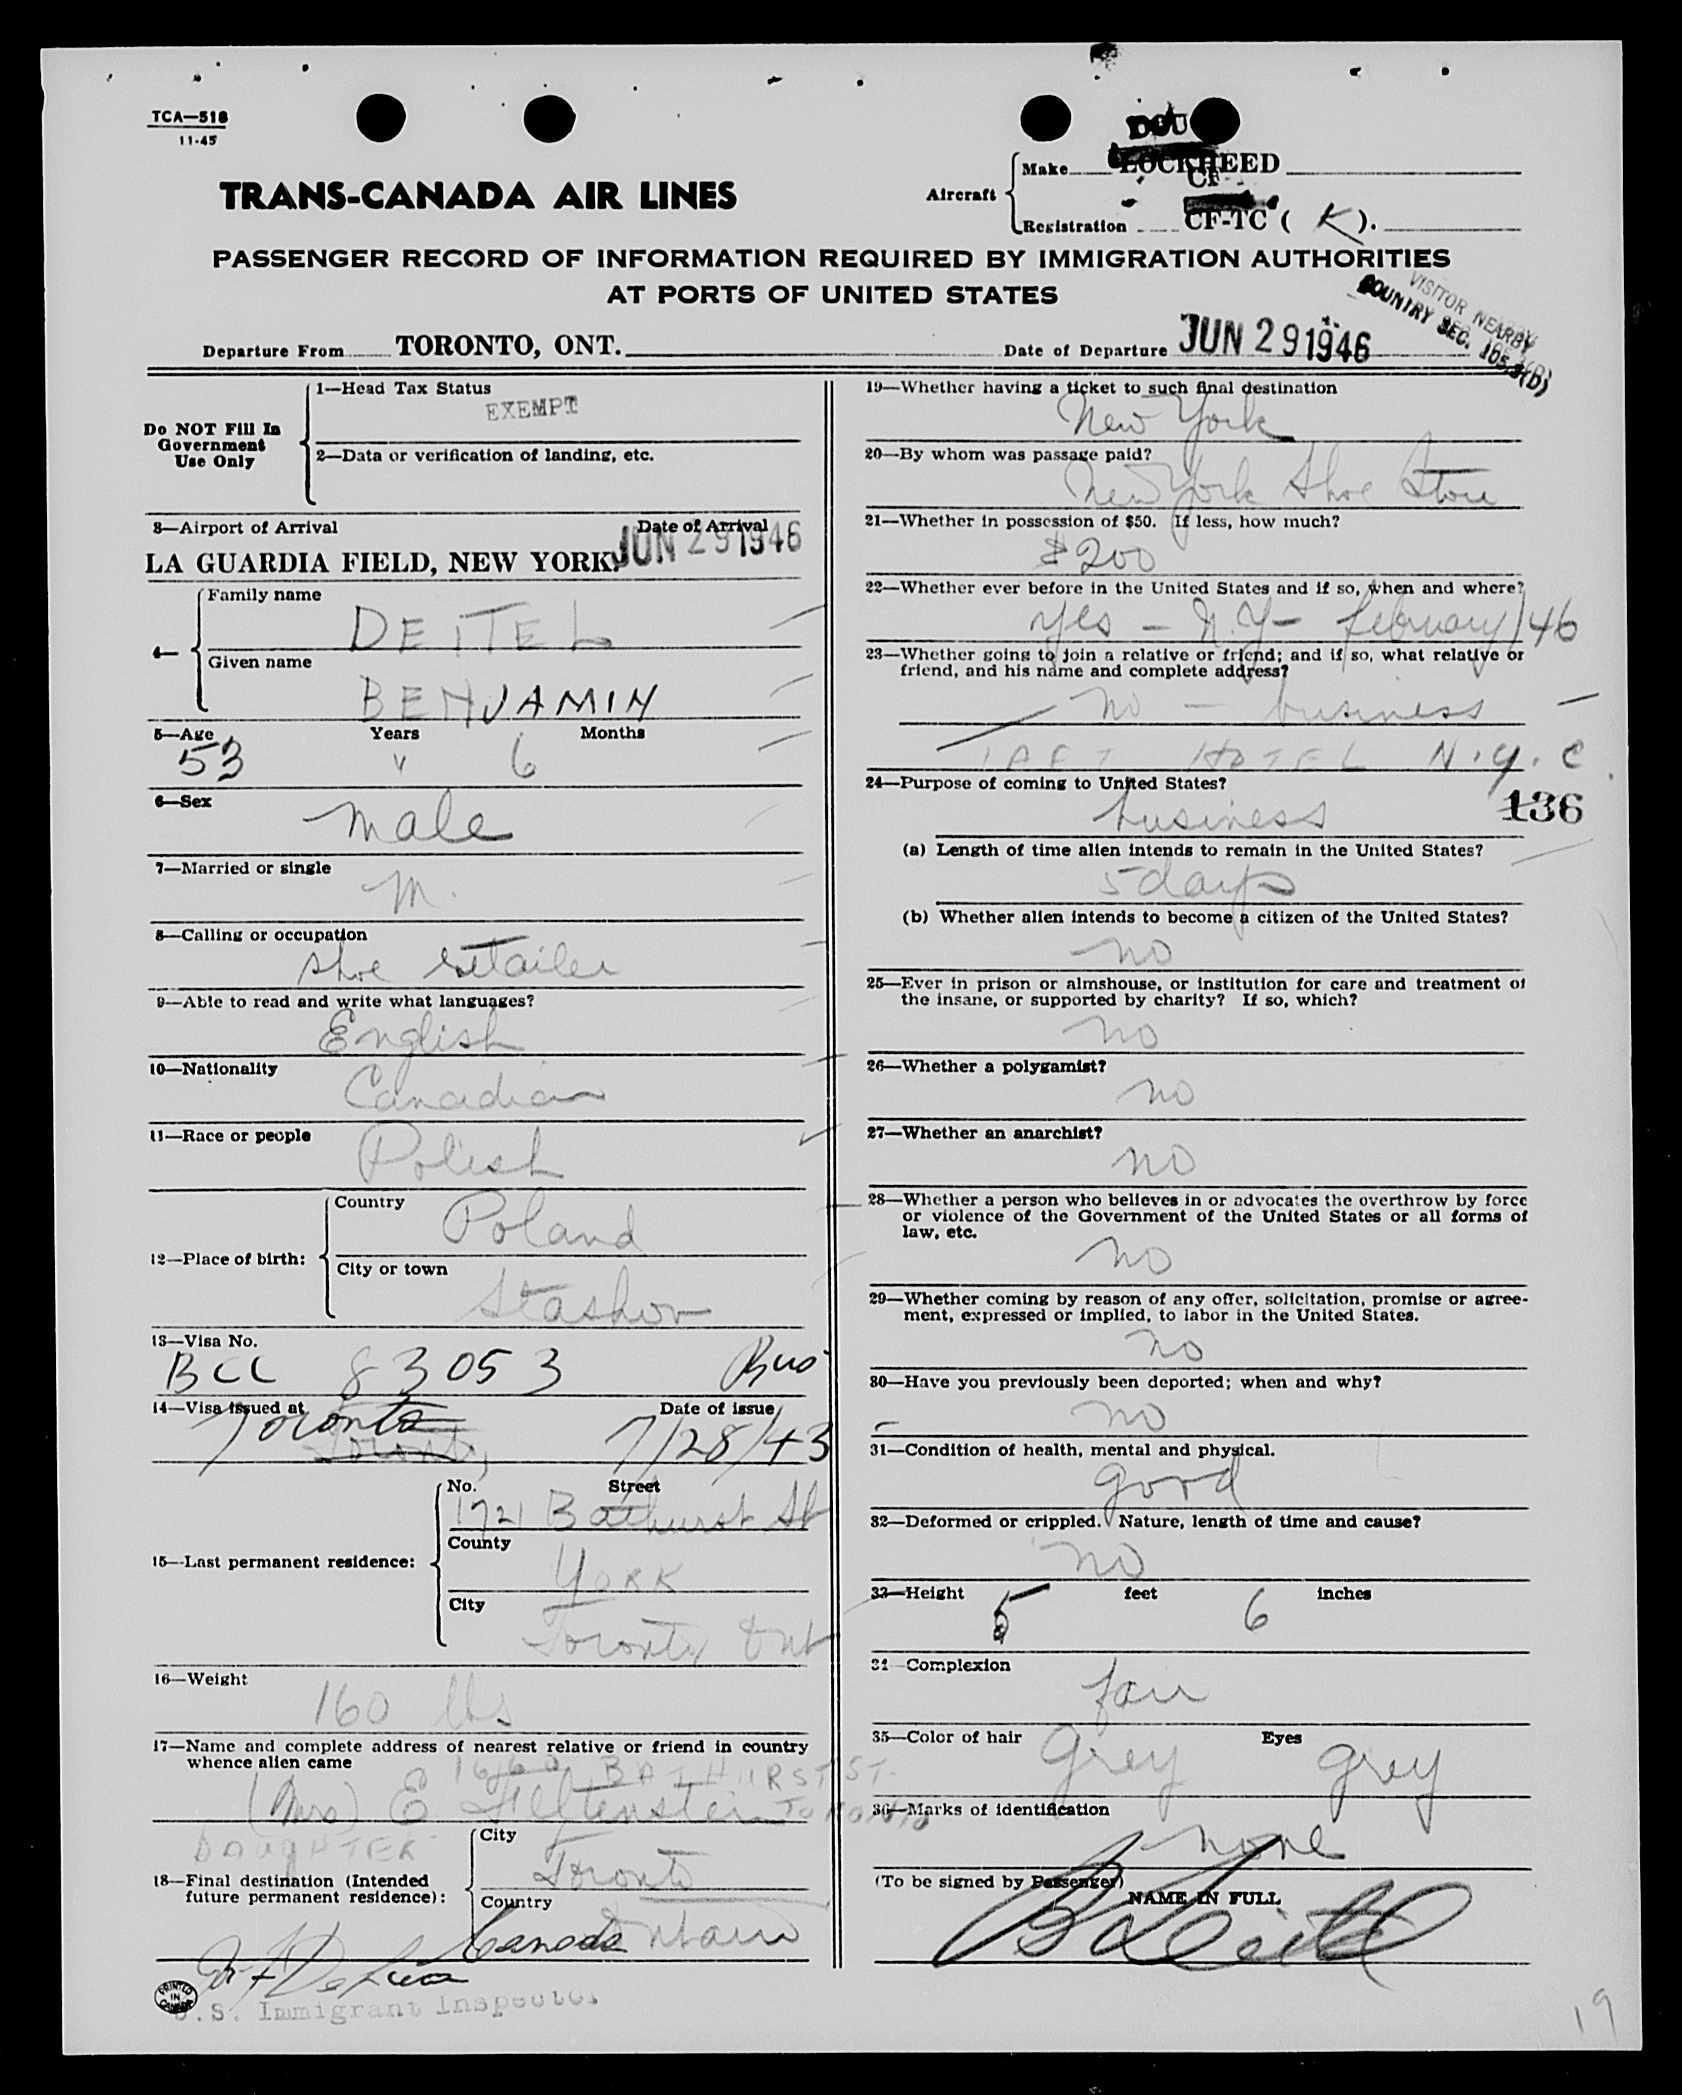 TCA—518
11-45
TRANS-CANADA AIR LINES
Aircraft
Make LOCKHEED
CF
Registration CF-TC ( K ).
PASSENGER RECORD OF INFORMATION REQUIRED BY IMMIGRATION AUTHORITIES
AT PORTS OF UNITED STATES
VISITOR NEARBY
COUNTRY SEC.
Departure From TORONTO, ONT.
Date of Departure JUN 29 1946
Do NOT Fill In
Government
Use Only
1—Head Tax Status
EXEMPT
2—Data or verification of landing, etc.
3—Airport of Arrival Date of Arrival
LA GUARDIA FIELD, NEW YORK. JUN 29 1946
4—
Family name
DEITEL
Given name
BENJAMIN
5—Age Years Months
53 " 6
6—Sex
Male
7—Married or single
M.
8—Calling or occupation
shoe retailer
9—Able to read and write what languages?
English
10—Nationality
Canadian
11—Race or people
Polish
12—Place of birth:
Country
Poland
City or town
Stashov
13—Visa No.
BCC 83053 Bus
14—Visa issued at Date of issue
Toronto 7/28/43
15—Last permanent residence:
No. Street
1721 Bathurst St
County
YORK
City
Toronto Ont
16—Weight
160 lbs
17—Name and complete address of nearest relative or friend in country
whence alien came
1660 BATHURST ST.
(Mrs) E TORONTO
DAUGHTER
18—Final destination (Intended
future permanent residence):
City
Toronto
Country
Canada Ontario
U.S. Immigrant Inspector
PRINTED
IN
CANADA
19—Whether having a ticket to such final destination
New York
20—By whom was passage paid?
New York Shoe Store
21—Whether in possession of $50. If less, how much?
$200
22—Whether ever before in the United States and if so, when and where?
yes - N.Y- february/46
23—Whether going to join a relative or friend; and if so, what relative or
friend, and his name and complete address?
no - business
TAFT HOTEL N.Y.C.
24—Purpose of coming to United States?
business
136
(a) Length of time alien intends to remain in the United States?
5 days
(b) Whether alien intends to become a citizen of the United States?
no
25—Ever in prison or almshouse, or institution for care and treatment of
the insane, or supported by charity? If so, which?
no
26—Whether a polygamist?
no
27—Whether an anarchist?
no
28—Whether a person who believes in or advocates the overthrow by force
or violence of the Government of the United States or all forms of
law, etc.
no
29—Whether coming by reason of any offer, solicitation, promise or agree-
ment, expressed or implied, to labor in the United States.
no
30—Have you previously been deported; when and why?
no
31—Condition of health, mental and physical.
good
32—Deformed or crippled. Nature, length of time and cause?
no
33—Height 5 feet 6 inches
34—Complexion
fair
35—Color of hair Eyes
grey grey
36—Marks of identification
none
(To be signed by Passenger)
NAME IN FULL
19